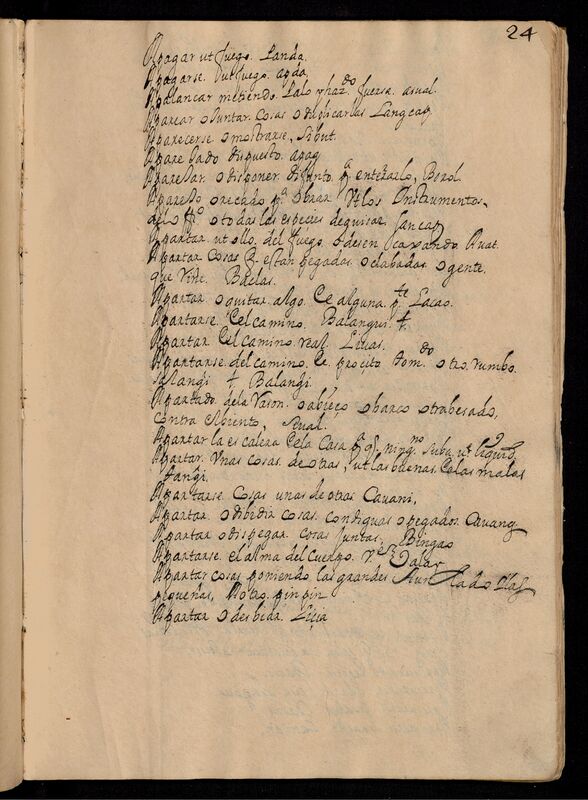 24
Apagar ut fuego. Landa.
Apagarse. Dut fuego. apda,
Apalancar metiendo. Palo y haz.do fuersa. asual.
Aparear o Juntar. Cosas o duplicarlas Langcap
Aparecerse o mostrarse, sibut.
Apare Jado dispuesto. apag
Aparesar. o disponer. difunto. p.a enterarlo, Borol.
Aparejo o recado p.a obrar Vt los Instrumentos,
o todas las especies de guisar. sancap
Apartar. ut ollo. del fuego. o desen caxando Auat.
Apartar cosas q. estan pegadas. o clabadas. o gente.
que Viñe. Baclas.
Apartar. o quitar. algo. Ce alguna. p.te Lacao.
Apartarse. Cel camino. Balangui. t.
Apartar. Cel camino. real. Liuas.
Apartarse. del camino. Ce. propcito tom.do otro. rumbo.
Salangi t. Balangi.
Apartado. dela Vason. o abieço o barco atrabesado,
contra el biento, sual.
Apartar la es calera Cela Casa p.a q. ning.no Suba. ut
Apartar. Vnas cosas. de otras, ut las buenas. Celas malas
Tangi.
Apartarse. Cosas unas de otras Cauani,
Apartar. o dibidir cosas. condiguas o pegados. Cauang
Apartar o dispegar. cosas juntas, Bingao
Apartarse. el alma del cuerpo. Dalar
Apartar cosas poniendo. las grandes. lado
pequeñas, pinpin
Apartar o desbidir. Liçia